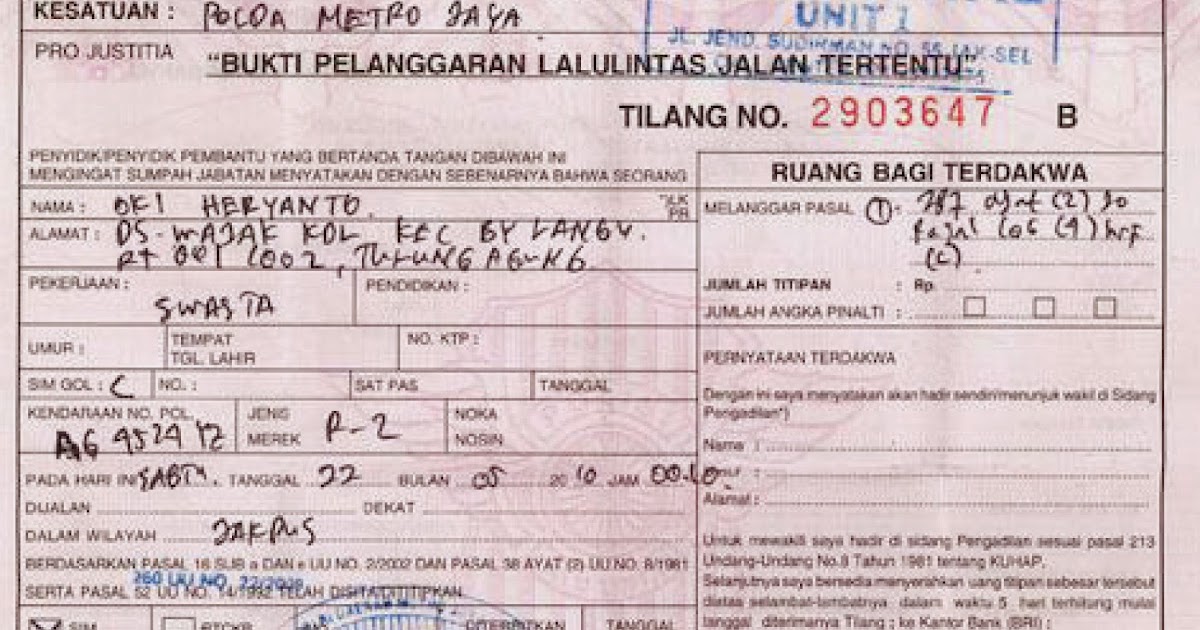 KESATUAN : POLDA METRO JAYA
UNIT 1
JL. JEND. SUDIRMAN NO. 55 JAK-SEL
PRO JUSTITIA
"BUKTI PELANGGARAN LALULINTAS JALAN TERTENTU"
TILANG NO. 2903647 B
PENYIDIK/PENYIDIK PEMBANTU YANG BERTANDA TANGAN DIBAWAH INI
MENGINGAT SUMPAH JABATAN MENYATAKAN DENGAN SEBENARNYA BAHWA SEORANG
NAMA : OKI HERYANTO.
LK
PR
ALAMAT : DS-WAJAK KDL KEC BY LANGU.
RT 001 / 002, TULUNG AGUNG.
PEKERJAAN : SWASTA
PENDIDIKAN :
UMUR :
TEMPAT
TGL. LAHIR
NO. KTP :
SIM GOL : C
NO. :
SAT PAS
TANGGAL
KENDARAAN NO. POL.
AG 4524 YZ
JENIS
MEREK R-2
NOKA
NOSIN
PADA HARI INI SABTU. TANGGAL 22 BULAN 05 2010 JAM 00.10
DIJALAN DEKAT
DALAM WILAYAH JAKPUS
BERDASARKAN PASAL 16 SUB a DAN e UU NO. 2/2002 DAN PASAL 38 AYAT (2) UU NO. 8/1981
260 UU NO. 22/2009
SERTA PASAL 52 UU NO. 14/1992 TELAH DISITA/DITITIPKAN
SIM
STCKB
DITERBITKAN
TANGGAL
RUANG BAGI TERDAKWA
MELANGGAR PASAL 1 : 287 ayat (2) Jo
Pasal 106 (4) hrf
(c)
JUMLAH TITIPAN : Rp.
JUMLAH ANGKA PINALTI :
PERNYATAAN TERDAKWA
Dengan ini saya menyatakan akan hadir sendiri/menunjuk wakil di Sidang
Pengadilan*)
Nama :
Umur :
Alamat :
Untuk mewakili saya hadir di sidang Pengadilan sesuai pasal 213
Undang-Undang No.8 Tahun 1981 tentang KUHAP.
Selanjutnya saya bersedia menyerahkan uang titipan sebesar tersebut
diatas selambat-lambatnya dalam waktu 5 hari terhitung mulai
tanggal diterimanya Tilang ; ke Kantor Bank (BRI) :